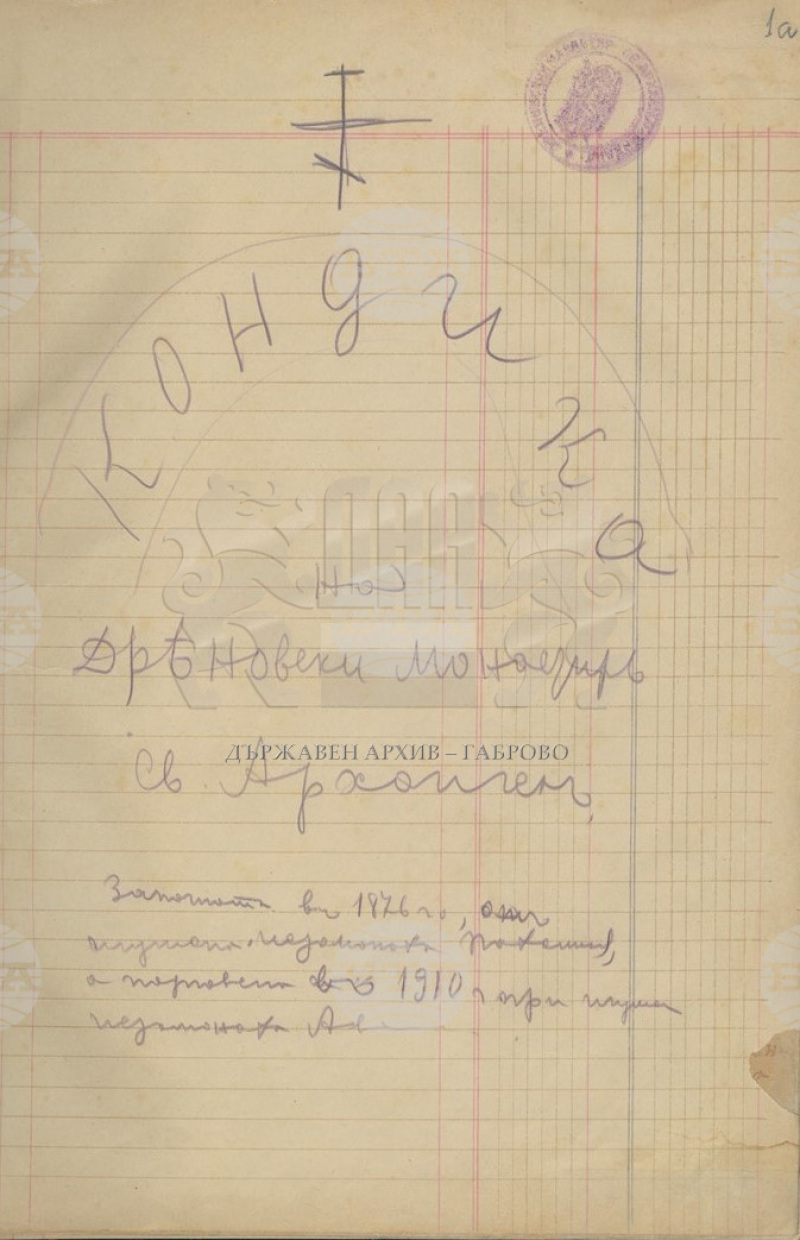 1а
КОНДИКА
на
Дрѣновски Монастиръ
ДЪРЖАВЕН АРХИВ – ГАБРОВО
Св. Архангелъ
Започната въ 1876 го, отъ
игумена иеромонаха Пахомия,
а подновена въ 1910 г при игумен
иеромонаха